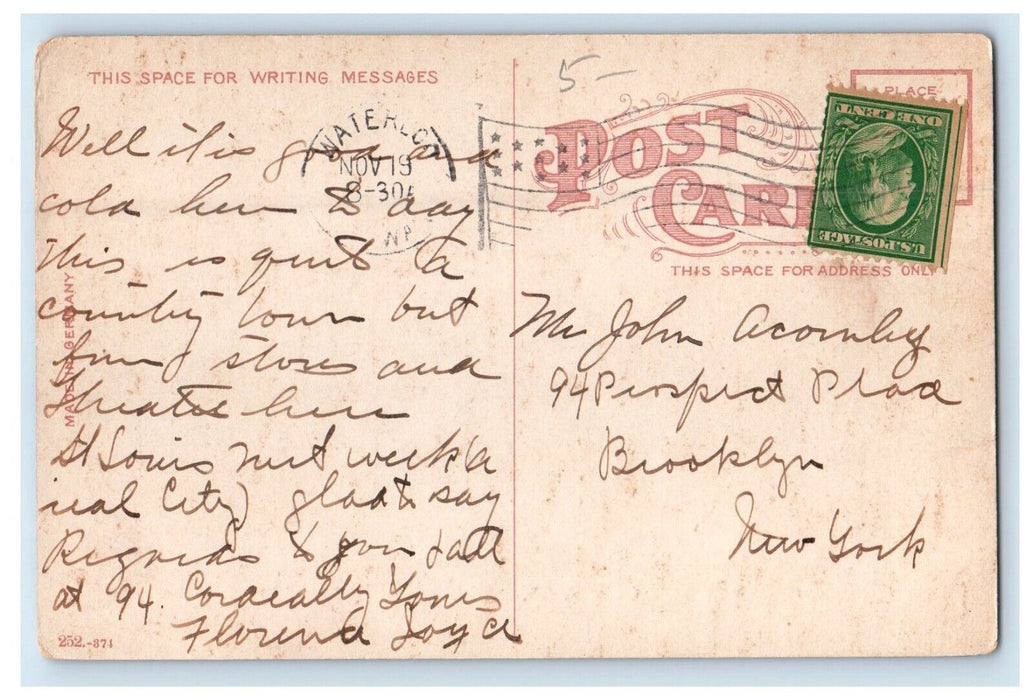 THIS SPACE FOR WRITING MESSAGES
Well it is good and
cold here to day
This is quite a
country town but
fine stores and
theatre here
St Louis next week (a
real City) glad to say
Regards to you & all
at 94. Cordially Yours
Florence
252.-374
MADE IN GERMANY
WATERLOO
NOV 19
8-30A
5-
POST CARD
PLACE
ONE CENT
U.S. POSTAGE
THIS SPACE FOR ADDRESS ONLY
Mr John Acornley
94 Prospect Place
Brooklyn
New York